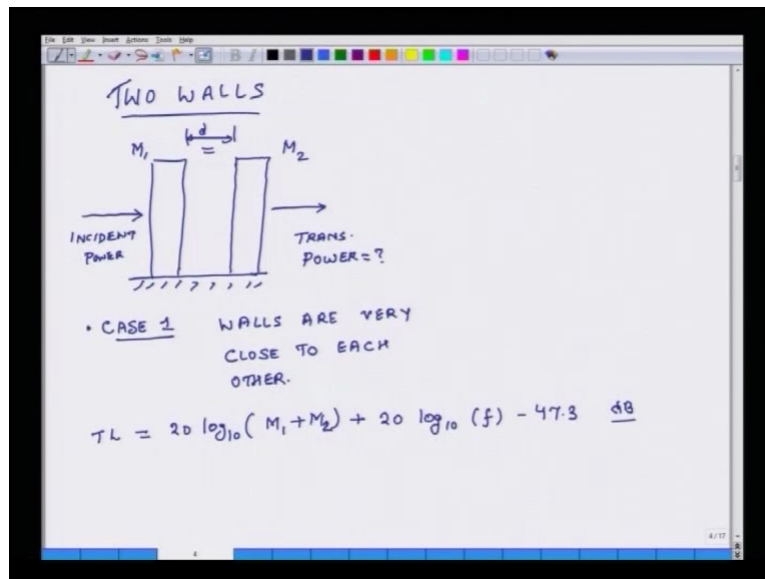 File Edit View Insert Actions Tools Help
TWO WALLS
d
M₁ M₂
INCIDENT POWER
TRANS. POWER = ?
• CASE 1 WALLS ARE VERY
CLOSE TO EACH
OTHER.
TL = 20 log₁₀ ( M₁ + M₂ ) + 20 log₁₀ (f) - 47.3 dB
4/17
4